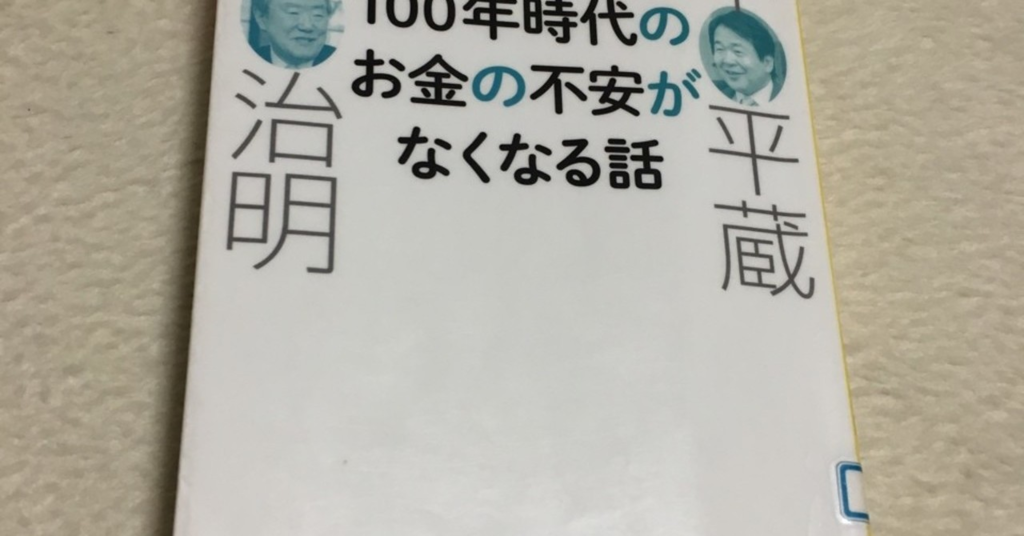 100年時代の
お金の不安が
なくなる話
平蔵
治明